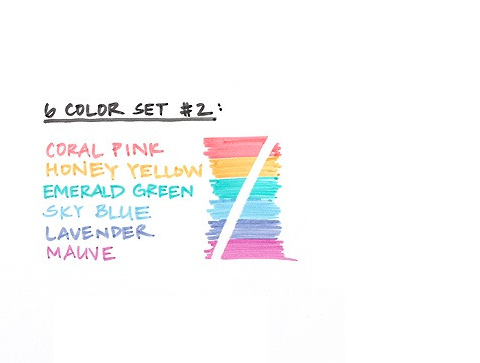 6 COLOR SET #2:
CORAL PINK
HONEY YELLOW
EMERALD GREEN
SKY BLUE
LAVENDER
MAUVE